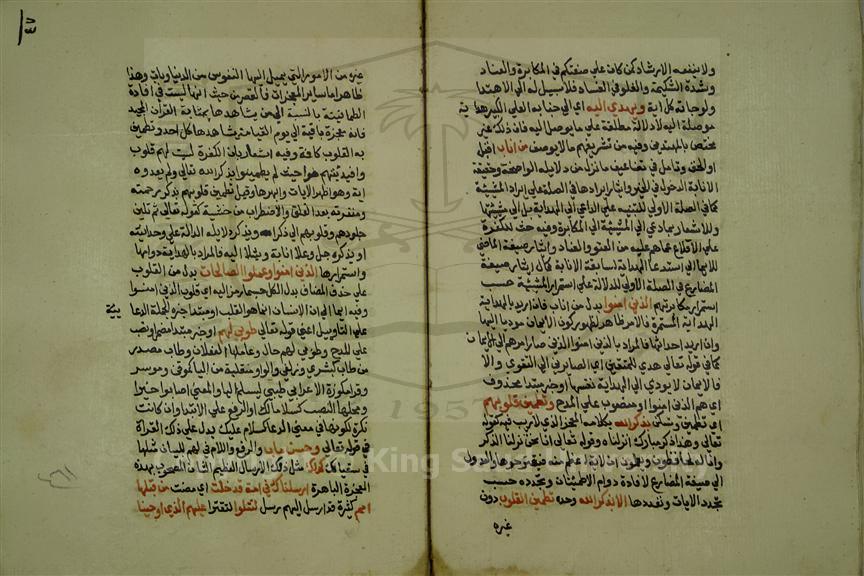 ولا ينفعه الارشاد كمن كان على صفتكم في المكابرة والعناد
وشدة الشكيمة والغلو في الفساد فلا سبيل له الى الاهتدا
ولو جاءته كل اية ويهدي اليه اي الى جنابه العلي الكبير هداية
موصلة اليه لا دلالة مطلقة على ما يوصل اليه فان ذلك غير
مختص بالمهتدين وفيه من تشريفهم ما لا يوصف من اناب اقبل
الى الحق وتامل في تضاعيف ما نزل من دلايله الواضحة وحقيقة
الانابة الدخول في نوبة الخير وايثار ايرادها في الصلة على ايراد المشيئة
كما في الصلة الاولى للتنبيه على الداعي الى الهداية بل الى مشيئتها
وللاشعار بما دعى الى المشيئة الى المكابرة وفيه حث للكفرة
على الاقلاع عما هم عليه من العتو والعناد وايثار صيغة الماضي
للايما الى استدعا الهداية لسابقة الانابة كما ان ايثار صيغة
المضارع في الصلة الاولى للدلالة على استمرار المشيئة حسب
استمرار مكابرتهم الذين امنوا بدل من اناب فان اريد بالهداية
الهداية المستمرة فالامر ظاهر لظهور كون الايمان موديا اليها
وان اريد احداثها فالمراد بالذين امنوا الذين صار امرهم الى الايمان
كما في قوله تعالى هدى للمتقين اي الصايرين الى التقوى والا
فالايمان لا يودي الى الهداية نفسها او خبر مبتدا محذوف
اي هم الذين امنوا او منصوب على المدح وتطمئن قلوبهم
اي تطمئن وتسكن بذكر الله بكلامه المعجز الذي لا ريب فيه كقوله
تعالى وهذا ذكر مبارك انزلناه وقوله تعالى انا نحن نزلنا الذكر
وانا له لحافظون ويعلمون ان لا اية اعظم منه فيقترحوها والعدول
الى صيغة المضارع لافادة دوام الاطمئنان وتجدده حسب
تجدد الايات وتعددها الا بذكر الله وحده تطمئن القلوب دون
غيره
غيره من الامور التي يميل اليها النفوس من الدنياويات وهذا
ظاهر اما ساير المعجزات فالقصر من حيث انها ليست في افادة
الطمانينة بالنسبة الى من يشاهدها بمثابة القران المجيد
فانه معجزة باقية الى يوم القيامة يشاهدها كل احد وتطمئن
به القلوب كافة وفيه اشعار بان الكفرة ليست لهم قلوب
وافيدتهم هوا حيث لم يطمئنوا بذكر الله تعالى ولم يعدوه
اية وهو اظهر الايات وابهرها وقيل تطمئن قلوبهم بذكر رحمته
ومغفرته بعد القلق والاضطراب من خشيته كقوله تعالى ثم تلين
جلودهم وقلوبهم الى ذكر الله او بذكر دلايله الدالة على وحدانيته
او بذكره جل وعلا انابة وتبتلا اليه فالمراد بالهداية دوامها
واستمرارها الذين امنوا وعملوا الصالحات بدل من القلوب
على حذف المضاف بدل الكل حسبما رمز اليه اي قلوب الذين امنوا
وفيه ايما الى ان الانسان انما هو القلب او مبتدا خبره الجملة الدعائية
على التاويل اعني قوله تعالى طوبى لهم او خبر مبتدا مضمر او نصب
على المدح وطوبى لهم حال وعاملها الفعلان وطاب مصدر
من طاب كبشرى وزلفى والواو منقلبة من اليا كموقن وموسر
وقرا مكوزة الاعرابي طيبى ليسلم اليا والمعنى اصابوا خيرا
ومحلها النصب كسلاما لك او الرفع على الابتدا وان كانت
نكرة لكونها في معنى الدعا كسلام عليك يدل على ذلك القراة
في قوله تعالى وحسن ماب والرفع واللام في لهم للبيان مثلها
في سقيا لك كذلك مثل ذلك الارسال العظيم الشان المصحوب بهذه
المعجزة الباهرة ارسلناك في امة قد خلت اي مضت من قبلها
امم كثيرة قد ارسل اليهم رسل لتتلوا لتقرا عليهم الذي اوحينا